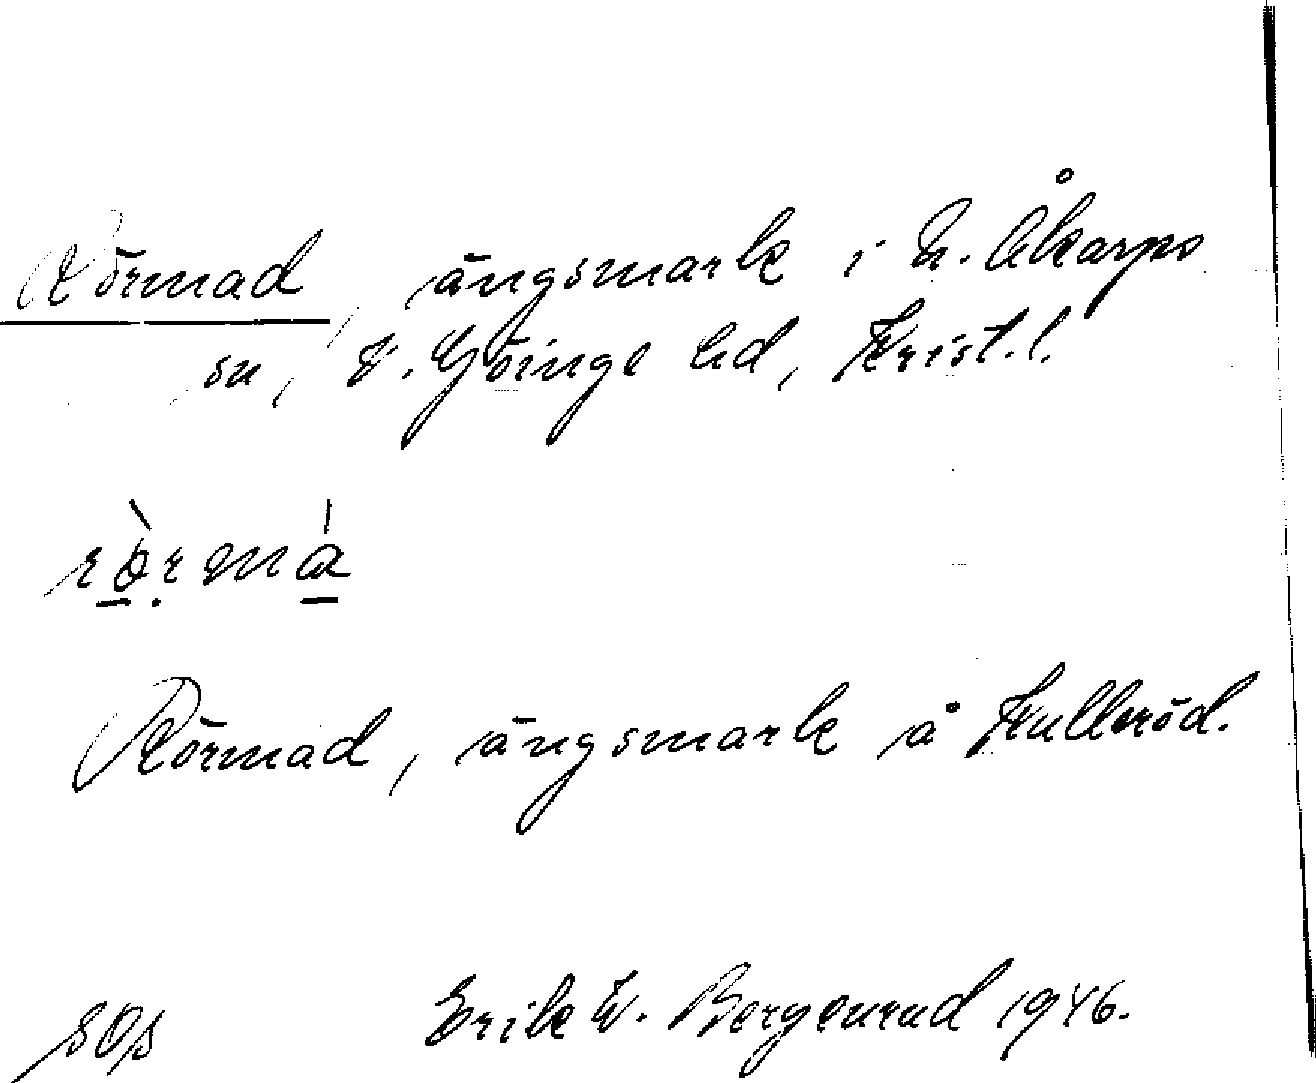 Rörmad, ängsmark i N. Åkarps
sn, V. Göinge hd, Krist. l.
rò̱ṛmá̱
Rörmad, ängsmark å Kulleröd.
Erik W. Bergenrud 1946.